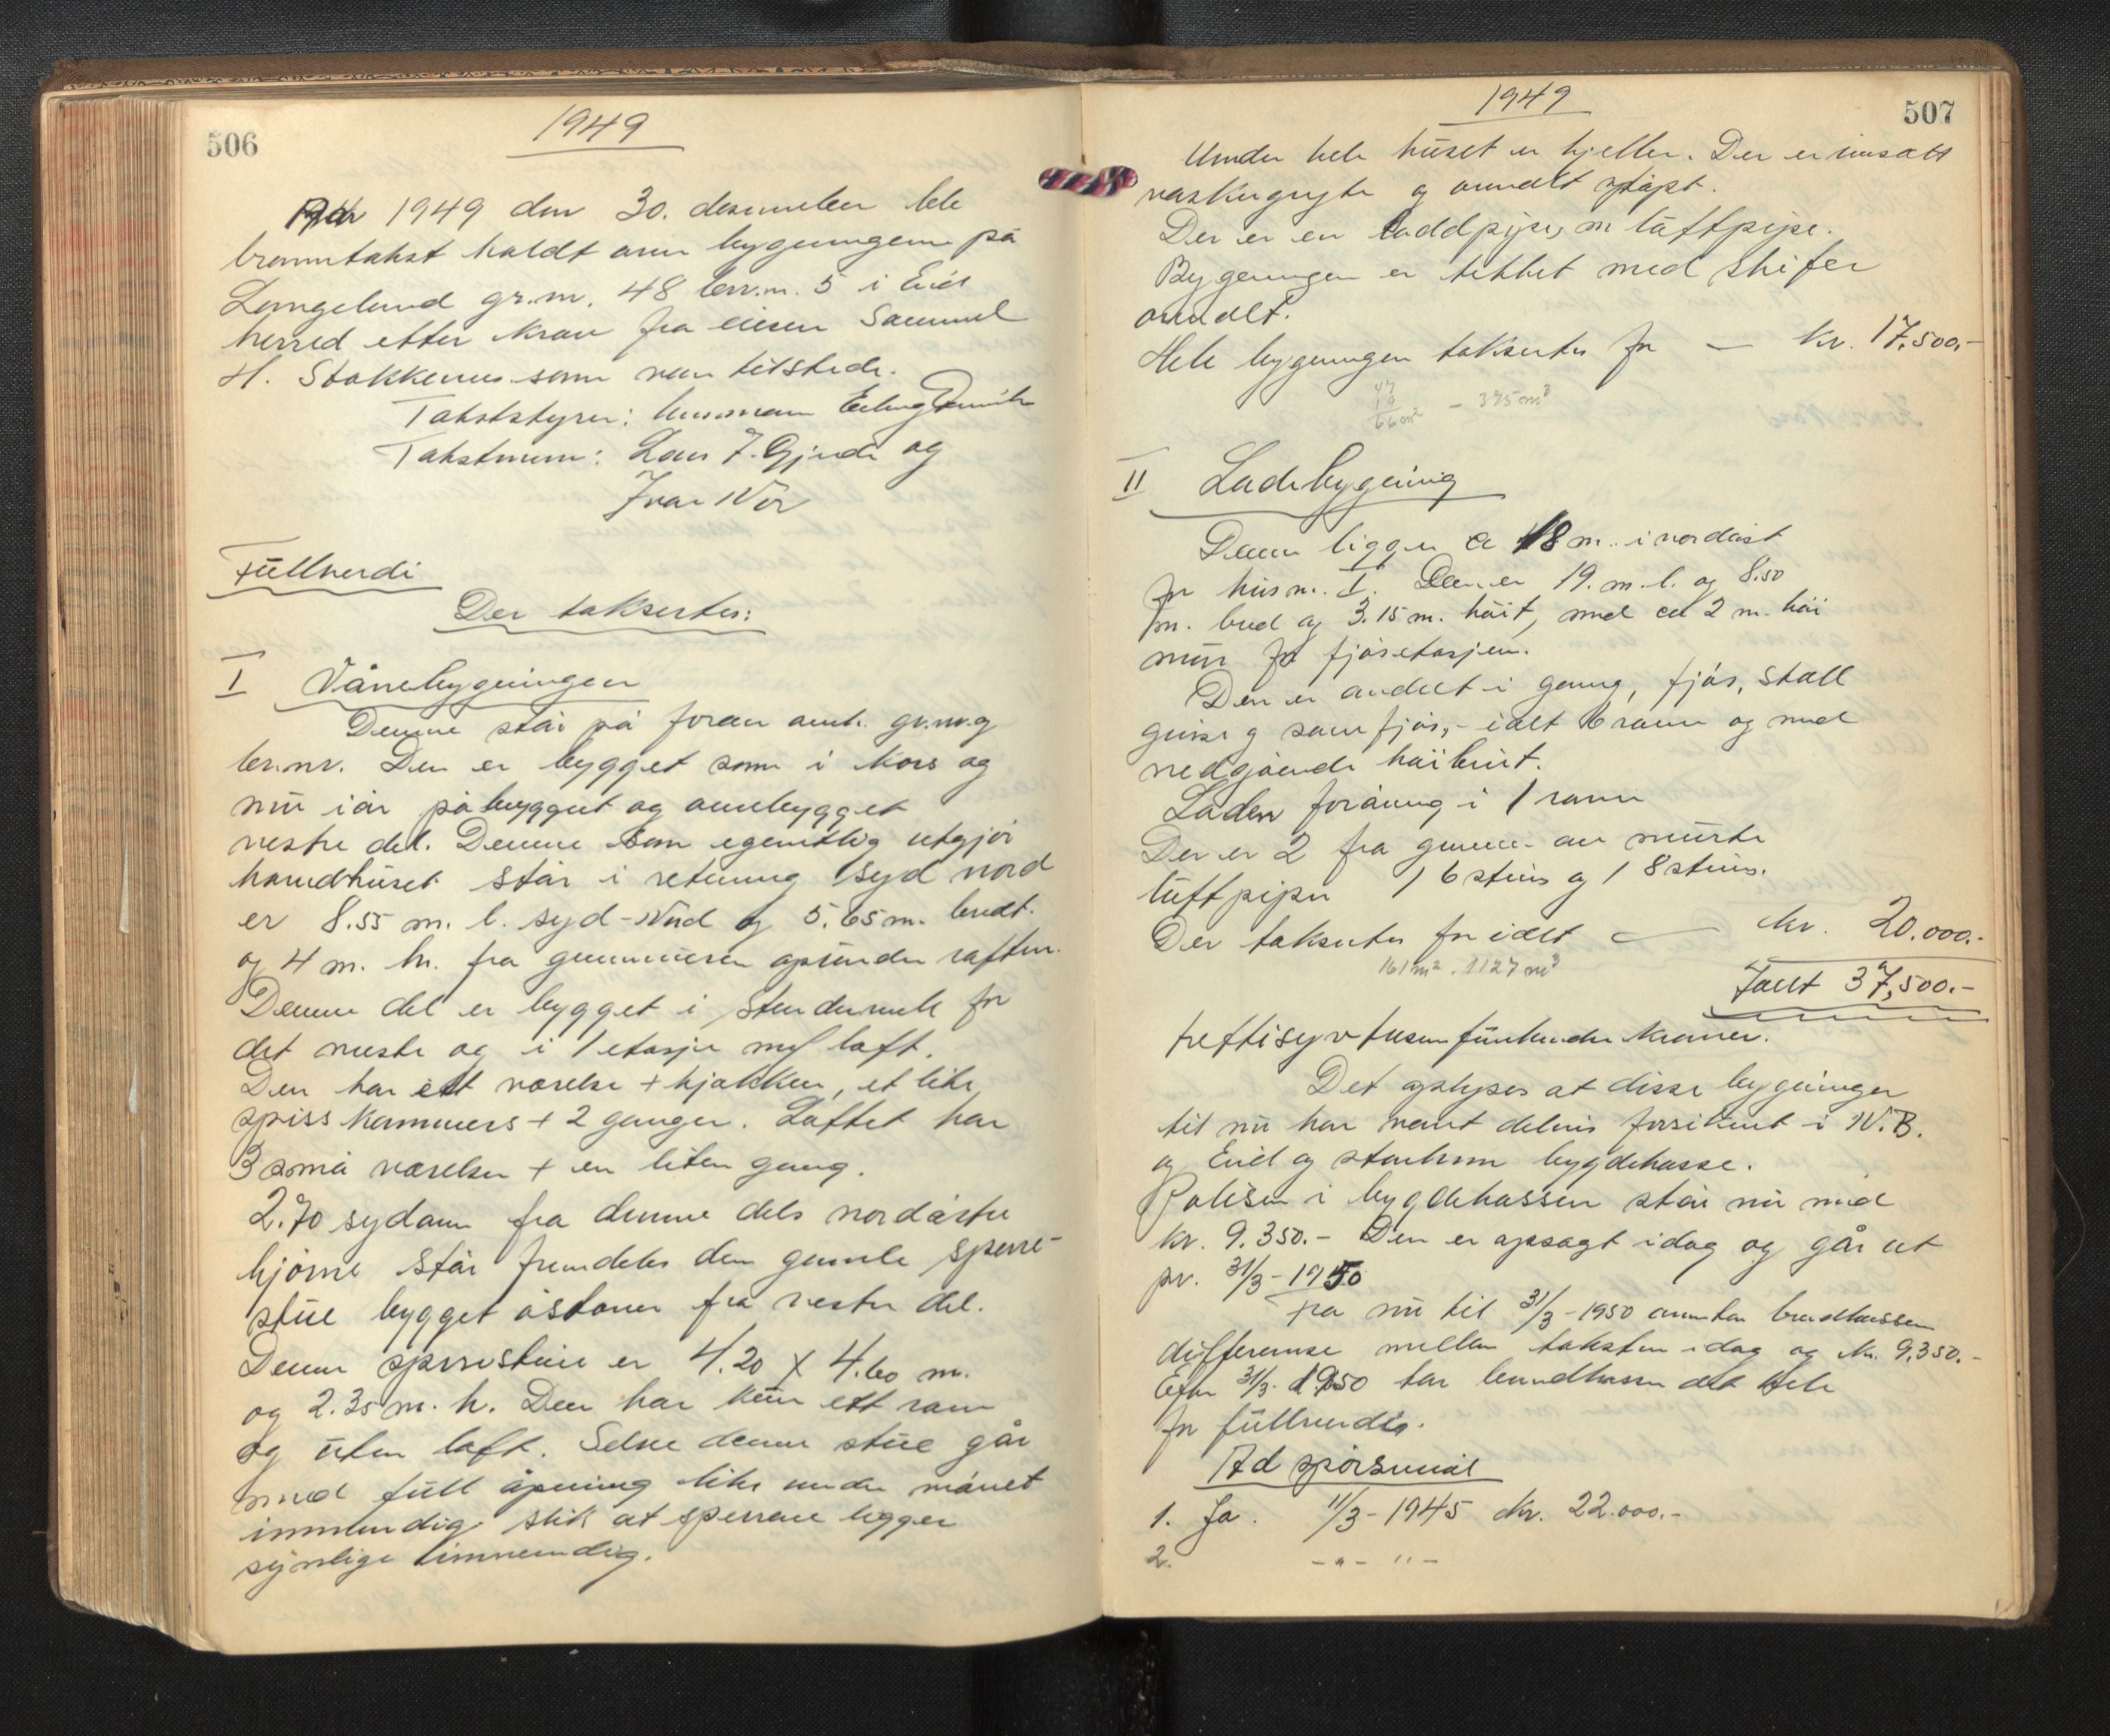 506
1949
År 1949 den 30. desember ble
branntakst holdt over bygningene på
Langeland gr.nr. 48 br.nr. 5 i Eid
herred etter krav fra eieren Samuel
H. Stokkenes som var tilstede.
Takststyrer: lensmann Erling
Takstmenn: Lars J. Gjerde og
Ivar Nor
Fullverdi
Der takseres:
I Vånebygningen
Denne står på foran omh. gr.nr. og
br.nr. Den er bygget som i kors og
nu i år påbygget og ombygget
vestre del. Denne som egentlig utgjør
hovedhuset står i retning syd nord
er 8.55 m. l. syd-Nord og 5.65 m. bredt.
og 4 m. h. fra grunnmuren opunder raften.
Denne del er bygget i stenderverk for
det meste og i 1 etasje m/ loft.
Den har ett værelse + kjøkken, et lite
spisskammers + 2 ganger. Loftet har
3 små værelser + en liten gang.
2.70 sydom fra denne dels nordøstre
hjørne står fremdeles den gamle sperre-
stue bygget østover fra vestre del.
Denne sperrestue er 4.20 x 4.60 m.
og 2.35 m. h. Den har kun ett rom
og uten loft. Selve denne stue går
med full åpning like under mønet
innvendig slik at sperrene ligger
synlige innvendig.
507
1949
Under hele huset er kjeller. Der er innsatt
vaskegryte og omdelt støpt.
Der er en loddpipe, m luftpipe.
Bygningen er tekket med skifer
overalt.
Hele bygningen takseres for — kr. 17.500.-
47
19
66 m² - 375 m³
II Ladebygning
Denne ligger ca 18 m. i nordøst
for hus nr. I. Den er 19. m. l. og 8.50
m. bred og 3.15 m. høit, med ca 2 m. høi
mur for fjøsetasjen.
Den er avdelt i gang, fjøs, stall
grise og sauefjøs, - ialt 6 rom og med
nedgående høibrut.
Laden forøvrig i 1 rom
Der er 2 fra grunnen av murte
luftpiper 1 6 stens og 1 8 stens.
Der takseres for ialt — kr. 20.000.-
161 m². 1127 m³
Ialt 37,500.-
trettisyvtusenfemhundre kroner.
Det oplyses at disse bygninger
til nu har vært delvis forsikret i N.B.
og Eid og Stårheim bygdekasse.
Polisen i bygdekassen står nu med
kr. 9.350.- Den er opsagt idag og går ut
pr. 31/3-1950
Fra nu til 31/3-1950 overtar brandkassen
differense mellem taksten idag og kr. 9.350.-
Efter 31/3. 1950 tar brandkassen det hele
for fullverdi.
Ad spørsmål
1. Ja. 11/3-1945 kr. 22.000.-
2. -"- "-